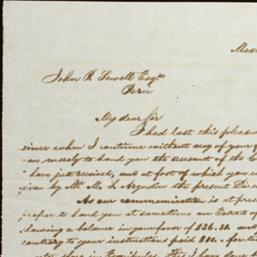 Mexi
John P. Sewell Esqr.
Peru
My dear Sir
I had last this pleasu
since when I continue without any of your f
am merely to hand you the account of the C
have just received, and at foot of which you
by Mr. M. L. the present
As our communication is at pres
prefer to hand you at sometime an
leaving a balance in your favor of $36.31. and
contrary to your instructions paid
I have